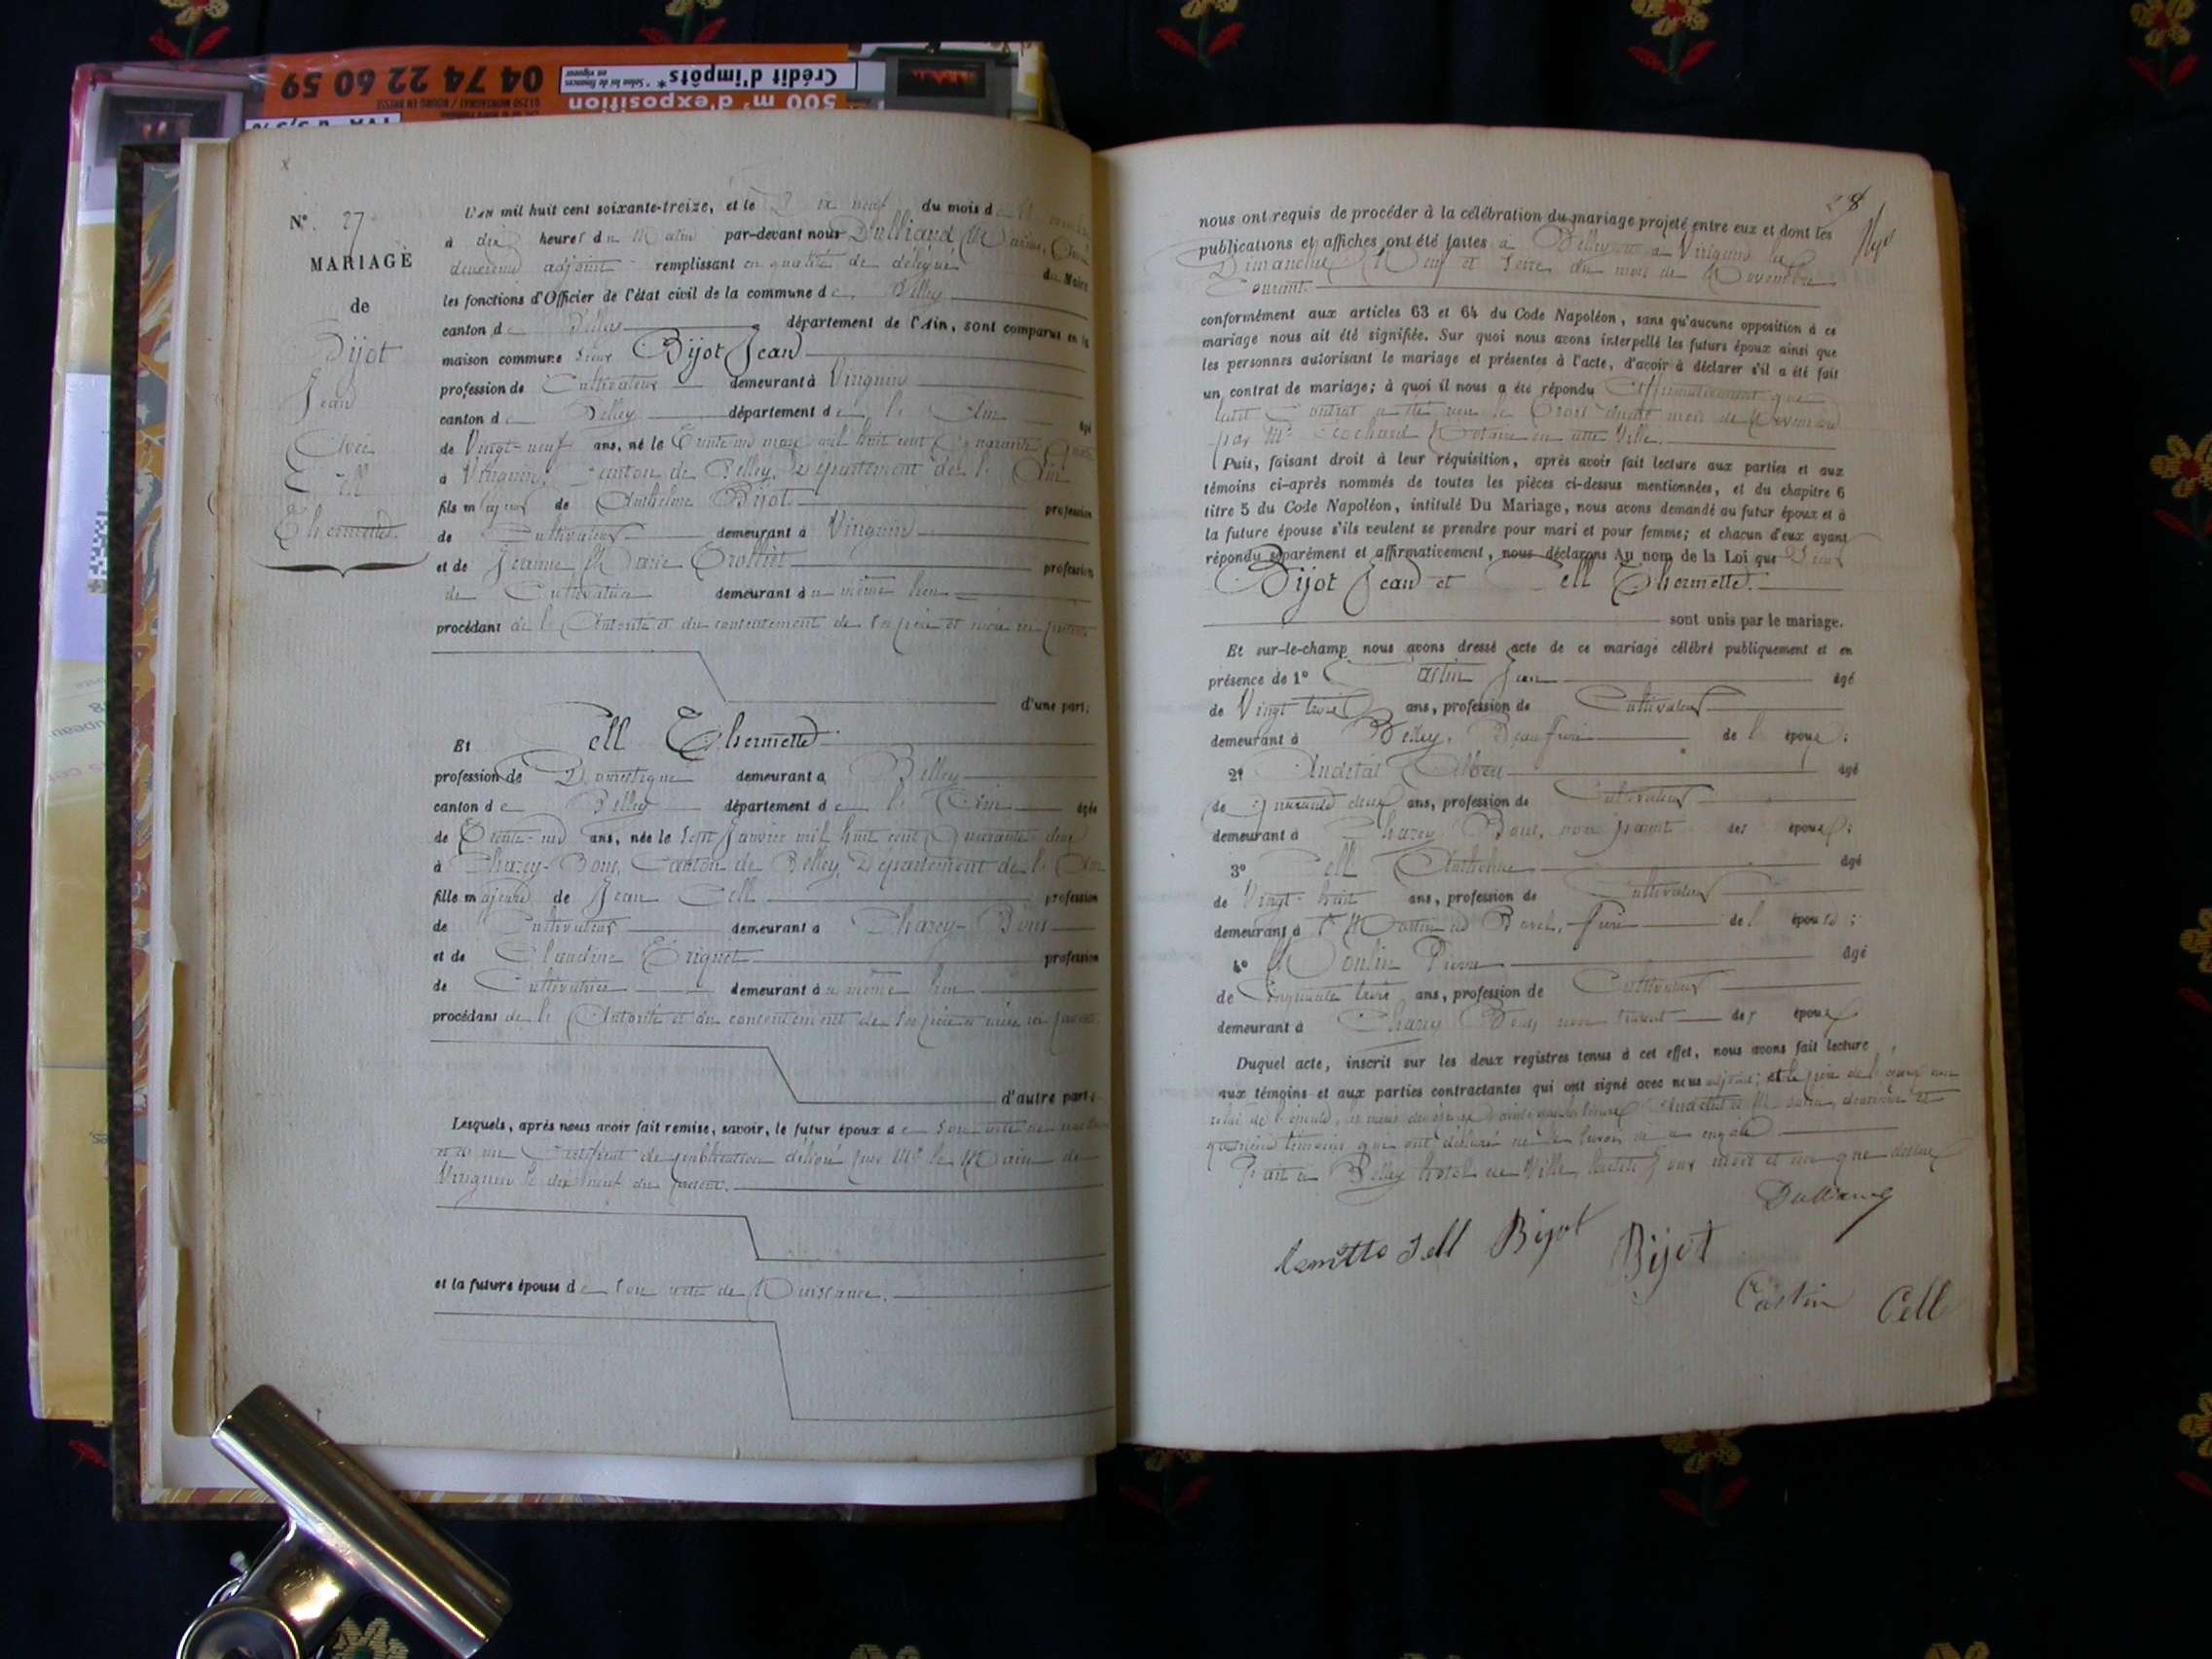 04 74 22 60 59
Crédit d'impôts*
* Selon loi de finances en vigueur
500 m² d'exposition
01250 MONTAGNAT / BOURG EN BRESSE
N° 27
MARIAGE
de
Bijot
Jean
Avec
Cell
Thermette.
L'an mil huit cent soixante-treize, et le Dix neuf du mois de
à dix heures du Matin par-devant nous Dulliand
deuxième adjoint remplissant en qualité de délégué du Maire
les fonctions d'Officier de l'état civil de la commune de Belley
canton de Belley département de l'Ain, sont comparus en la
maison commune sieur Bijot Jean
profession de Cultivateur demeurant à Virignin
canton de Belley département de l'Ain âgé
de Vingt-neuf ans, né le Trente un mars mil huit cent Quarante Quatre
à Virignin, Canton de Belley, Département de l'Ain
fils majeur de Anthelme Bijot profession
de Cultivateur demeurant à Virignin
et de Jeanne Marie profession
de Cultivatrice demeurant au même lieu
procédant de l'Autorité et du consentement de ses père et mère ici présents
d'une part;
Et Cell Thermette
profession de Domestique demeurant à Belley
canton de Belley département de l'Ain âgée
de Trente-un ans, née le sept Janvier mil huit cent Quarante deux
à Chazey-Bons, Canton de Belley, Département de l'Ain
fille majeure de Jean Cell profession
de Cultivateur demeurant à Chazey-Bons
et de Claudine profession
de Cultivatrice demeurant au même lieu
procédant de l'Autorité et du consentement de ses père et mère ici présents
d'autre part;
Lesquels, après nous avoir fait remise, savoir, le futur époux de son acte de naissance
et de un Certificat de publication délivré par Mr le Maire de
Virignin le dix neuf du présent.
et la future épouse de son acte de Naissance.
28
nous ont requis de procéder à la célébration du mariage projeté entre eux et dont les
publications et affiches ont été faites à Belley et à Virignin les
Dimanches Neuf et Seize du mois de Novembre
Courant.
conformément aux articles 63 et 64 du Code Napoléon, sans qu'aucune opposition à ce
mariage nous ait été signifiée. Sur quoi nous avons interpellé les futurs époux ainsi que
les personnes autorisant le mariage et présentes à l'acte, d'avoir à déclarer s'il a été fait
un contrat de mariage; à quoi il nous a été répondu Affirmativement que
ledit Contrat a été reçu le Trois dudit mois de Novembre
par Me Notaire en cette Ville.
Puis, faisant droit à leur réquisition, après avoir fait lecture aux parties et aux
témoins ci-après nommés de toutes les pièces ci-dessus mentionnées, et du chapitre 6
titre 5 du Code Napoléon, intitulé Du Mariage, nous avons demandé au futur époux et à
la future épouse s'ils veulent se prendre pour mari et pour femme; et chacun d'eux ayant
répondu séparément et affirmativement, nous déclarons Au nom de la Loi que
Bijot Jean et Cell Thermette.
sont unis par le mariage.
Et sur-le-champ nous avons dressé acte de ce mariage célébré publiquement et en
présence de 1° Castin Jean âgé
de Vingt trois ans, profession de Cultivateur
demeurant à Belley, Beau frère de l'époux;
2° âgé
de Quarante deux ans, profession de Cultivateur
demeurant à Chazey Bons, non parent des époux;
3° Cell Anthelme âgé
de Vingt-huit ans, profession de Cultivateur
demeurant à St Martin de Bavel, frère de l'épouse;
4° Moulin Pierre âgé
de Cinquante trois ans, profession de Cultivateur
demeurant à Chazey Bons non parent des époux
Duquel acte, inscrit sur les deux registres tenus à cet effet, nous avons fait lecture
aux témoins et aux parties contractantes qui ont signé avec nous adjoint; et le père de l'époux non
celui de l'épouse, les mères des époux
quatrième témoins qui ont déclaré ne le savoir
Fait à Belley hôtel de Ville, lesdits jour mois et an que dessus
Dulliand
Cell Bijot Bijot
Castin Cell